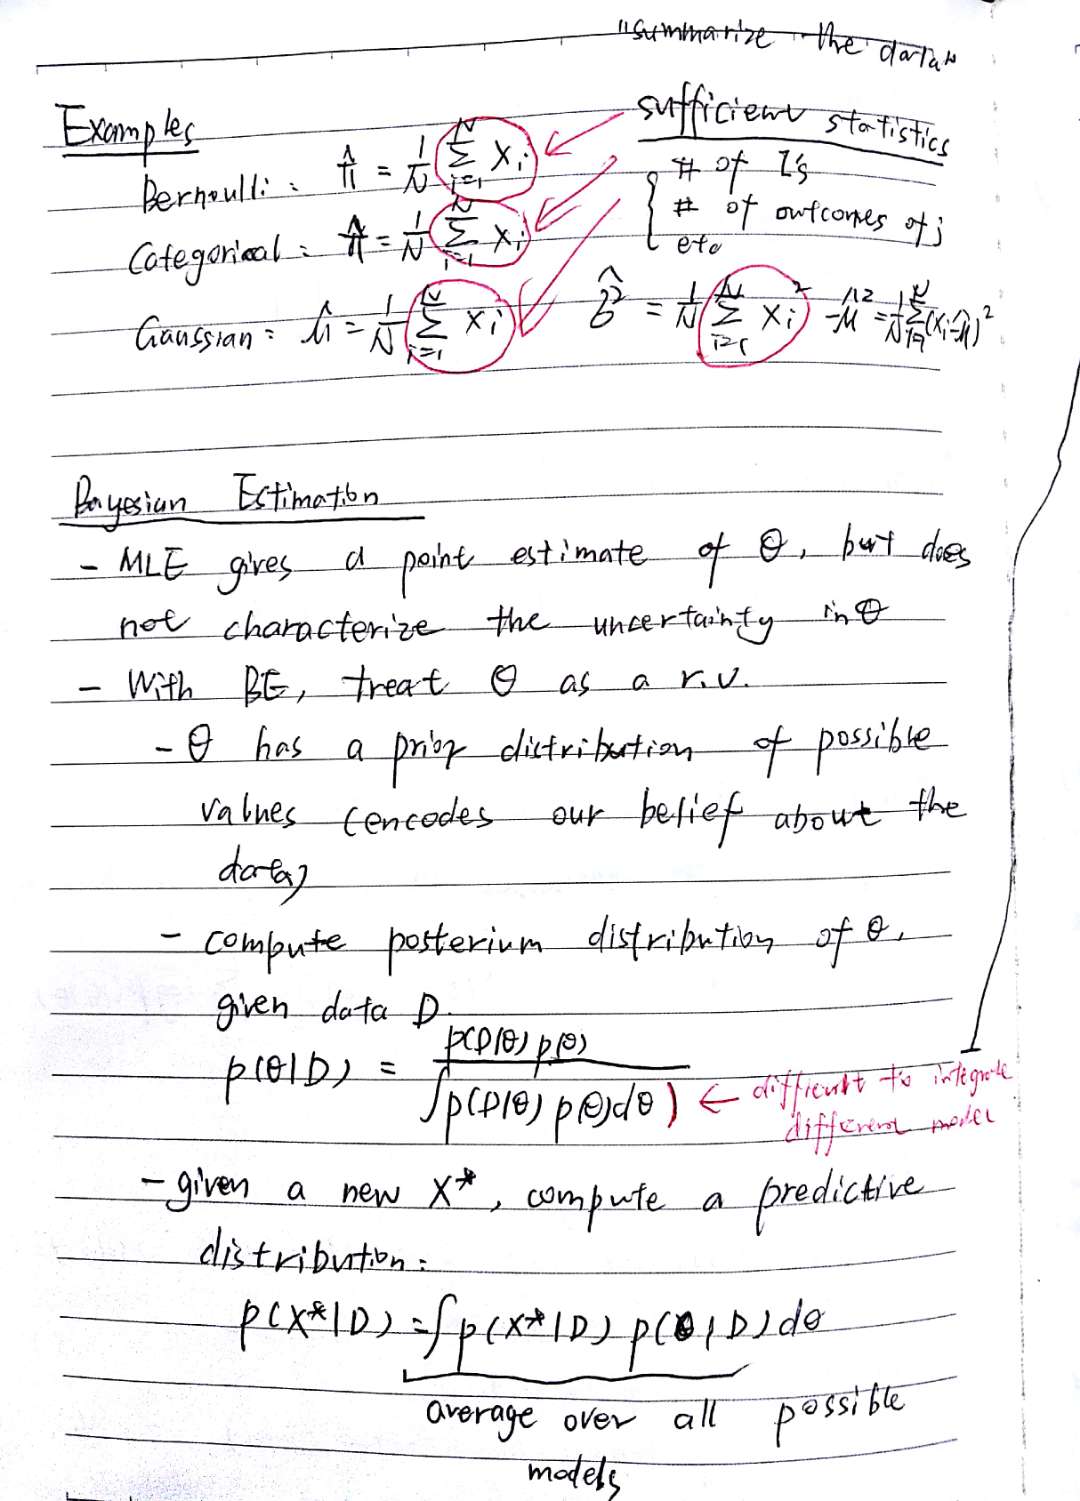 "summarize the data"
Examples
sufficient statistics
Bernoulli: π̂ = 1/N Σ_{i=1}^{N} x_i
# of 1's
# of outcomes of j
etc
Categorical: π̂ = 1/N Σ_{i=1}^{N} x_i
Gaussian: μ̂ = 1/N Σ_{i=1}^{N} x_i σ̂² = 1/N Σ_{i=1}^{N} x_i² - μ̂² = 1/N Σ_{i=1}^{N} (x_i - μ̂)²
Bayesian Estimation
- MLE gives a point estimate of θ, but does
not characterize the uncertainty in θ
- With BE, treat θ as a r.v.
- θ has a prior distribution of possible
values (encodes our belief about the
data)
- compute posterium distribution of θ,
given data D.
p(θ|D) = p(D|θ) p(θ) / ∫p(D|θ) p(θ)dθ ) ← difficult to integrate
different model
- given a new x*, compute a predictive
distribution:
p(x*|D) = ∫p(x*|D) p(θ|D) dθ
average over all possible
models